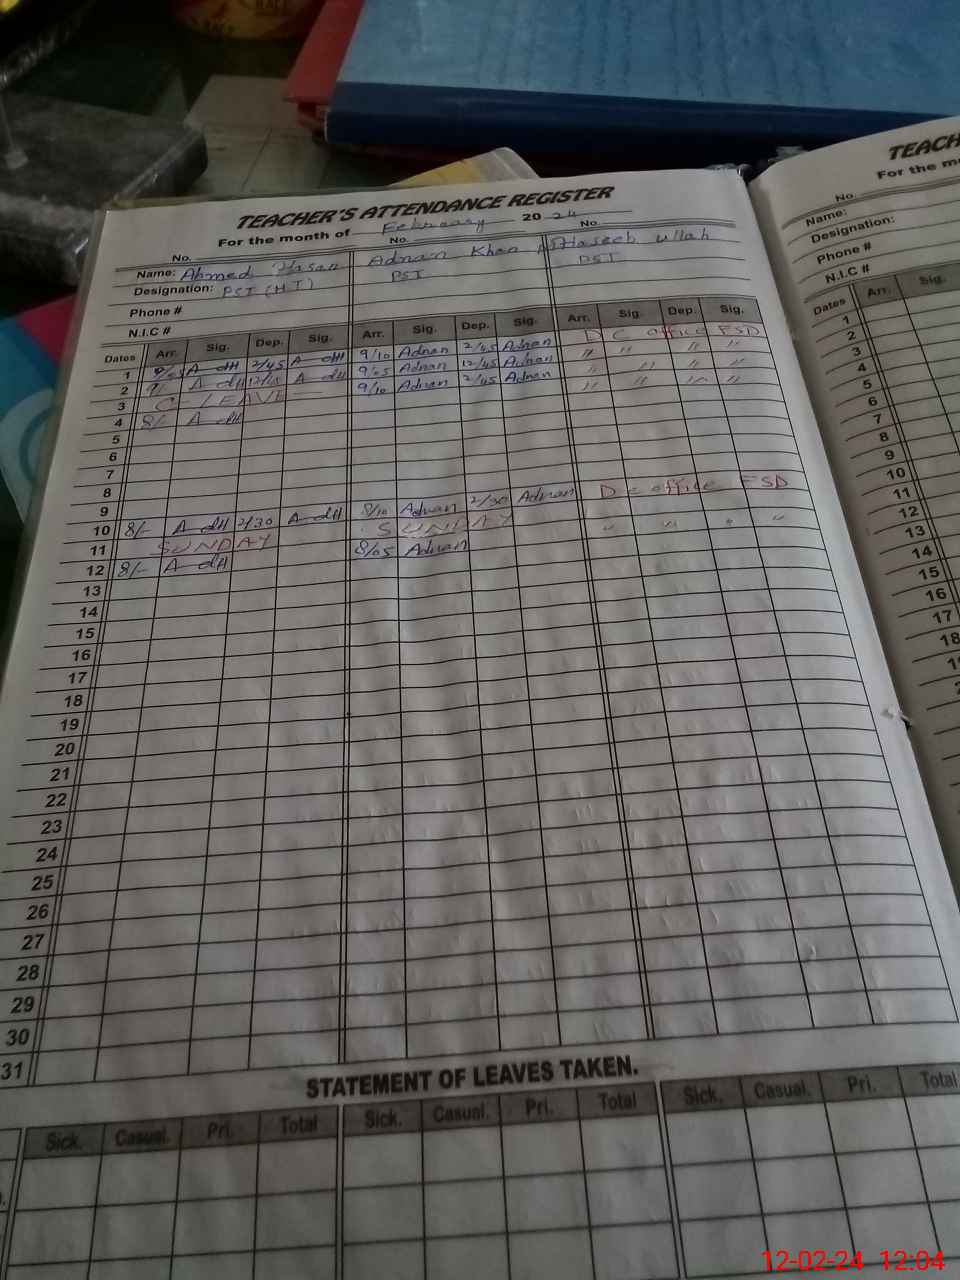 TEACHER'S ATTENDANCE REGISTER
For the month of February 20 24
No. No. No.
Name: Ahmed Hasan Adnan Khan Haseeb ullah
Designation: PST (HT) PST PST
Phone #
N.I.C #
Dates Arr. Sig. Dep. Sig. Arr. Sig. Dep. Sig. Arr. Sig. Dep. Sig.
1 9/05 2/45 9/10 Adnan 2/45 Adnan D C office FSD
2 9/- 12/45 9/05 Adnan 12/45 Adnan " " " "
3 C-LEAVE 9/10 Adnan 2/45 Adnan " " " "
4 8/-
5
6
7
8
9
10 8/- 2/30 8/10 Adnan 2/30 Adnan D C office FSD
11 SUNDAY SUNDAY " " " "
12 8/- 8/05 Adnan
13
14
15
16
17
18
19
20
21
22
23
24
25
26
27
28
29
30
31
STATEMENT OF LEAVES TAKEN.
Sick. Casual. Pri. Total Sick. Casual. Pri. Total Sick. Casual. Pri. Total
TEACH
For the m
No.
Name:
Designation:
Phone #
N.I.C #
Dates Arr. Sig.
1
2
3
4
5
6
7
8
9
10
11
12
13
14
15
16
17
18
12-02-24 12:04